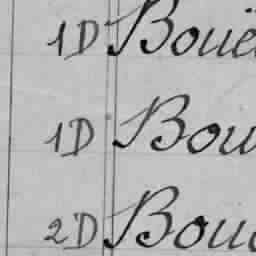 1D Boue
1D Bou
2D Bou